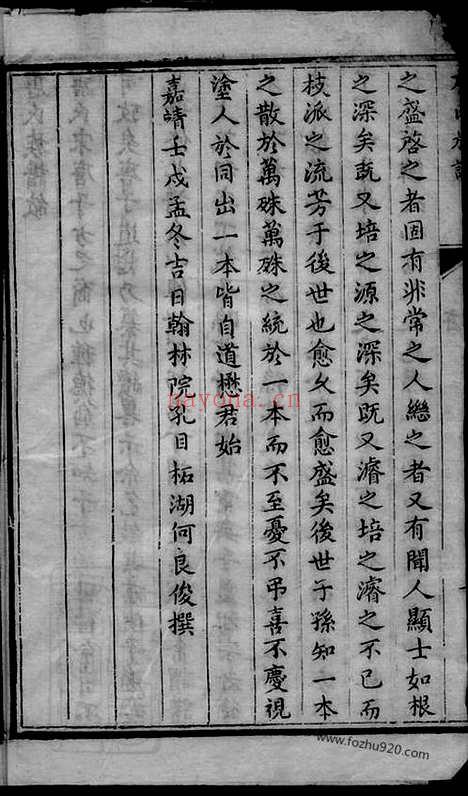 之盛啓之者固有非常之人繼之者又有聞人顯士如根
之深矣旣又培之源之深矣既又濬之培之濬之不已而
枝派之流芳于後世也愈久而愈盛矣後世子孫知一本
之散於萬殊萬殊之統於一本而不至憂不弔喜不慶視
塗人於同出一本皆自道懋君始
嘉靖壬戍孟冬吉日翰林院孔目柘湖何良俊撰
nayona.cn
www.fozhu920.com